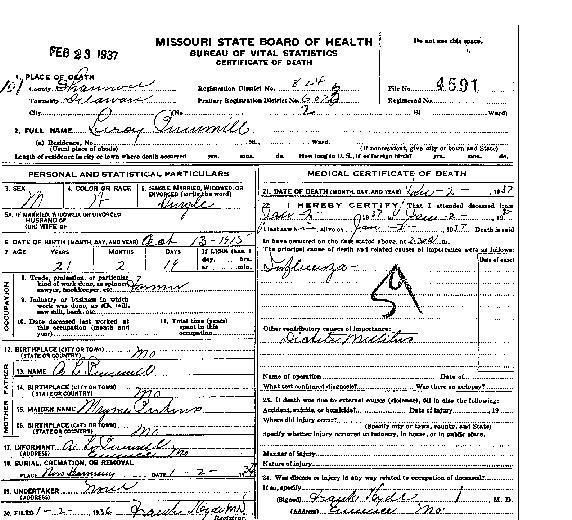 FEB 23 1937
MISSOURI STATE BOARD OF HEALTH
BUREAU OF VITAL STATISTICS
CERTIFICATE OF DEATH
Do not use this space.
1. PLACE OF DEATH
County Shannon
Township Delaware
City
Registration District No.
Primary Registration District No.
(No.
St.
Ward)
File No. 4591
Registered No.
2. FULL NAME Leroy
(a) Residence, No. St., Ward.
(Usual place of abode)
(If nonresident, give city or town and State)
Length of residence in city or town where death occurred yrs. mos. ds. How long in U. S., if of foreign birth? yrs. mos. ds.
PERSONAL AND STATISTICAL PARTICULARS
3. SEX M
4. COLOR OR RACE W
5. SINGLE, MARRIED, WIDOWED, OR DIVORCED (write the word) Single
5A. IF MARRIED, WIDOWED, OR DIVORCED
HUSBAND OF
(OR) WIFE OF
6. DATE OF BIRTH (MONTH, DAY, AND YEAR) Oct 13-1915
7. AGE YEARS MONTHS DAYS If LESS than 1 day, hrs. or min.
21 2 19
OCCUPATION
8. Trade, profession, or particular kind of work done, as spinner, sawyer, bookkeeper, etc. Farmer
9. Industry or business in which work was done, as silk mill, saw mill, bank, etc.
10. Date deceased last worked at this occupation (month and year)
11. Total time (years) spent in this occupation
12. BIRTHPLACE (CITY OR TOWN)
(STATE OR COUNTRY) Mo
FATHER
13. NAME
14. BIRTHPLACE (CITY OR TOWN)
(STATE OR COUNTRY) Mo
MOTHER
15. MAIDEN NAME Mayme
16. BIRTHPLACE (CITY OR TOWN)
(STATE OR COUNTRY) Mo
17. INFORMANT
(ADDRESS) Eminence Mo
18. BURIAL, CREMATION, OR REMOVAL
PLACE New Harmony DATE 1-2-
19. UNDERTAKER none
(ADDRESS)
20. FILED 1-2-1936 Frank Hyde MD
Registrar.
MEDICAL CERTIFICATE OF DEATH
21. DATE OF DEATH (MONTH, DAY, AND YEAR) Jan-2-, 1937
22. I HEREBY CERTIFY, That I attended deceased from
Jan-2, 1937, to Jan-2-
I last saw alive on Jan-2-, 1937. Death is said
to have occurred on the date stated above, at
The principal cause of death and related causes of importance were as follows:
Date of onset
Influenza-
Other contributory causes of importance:
Name of operation Date of
What test confirmed diagnosis? Was there an autopsy?
23. If death was due to external causes (violence), fill in also the following:
Accident, suicide, or homicide? Date of injury, 19
Where did injury occur?
(Specify city or town, county, and State)
Specify whether injury occurred in industry, in home, or in public place.
Manner of injury
Nature of injury
24. Was disease or injury in any way related to occupation of deceased?
If so, specify
(Signed) Frank Hyde, M. D.
(Address) Eminence Mo